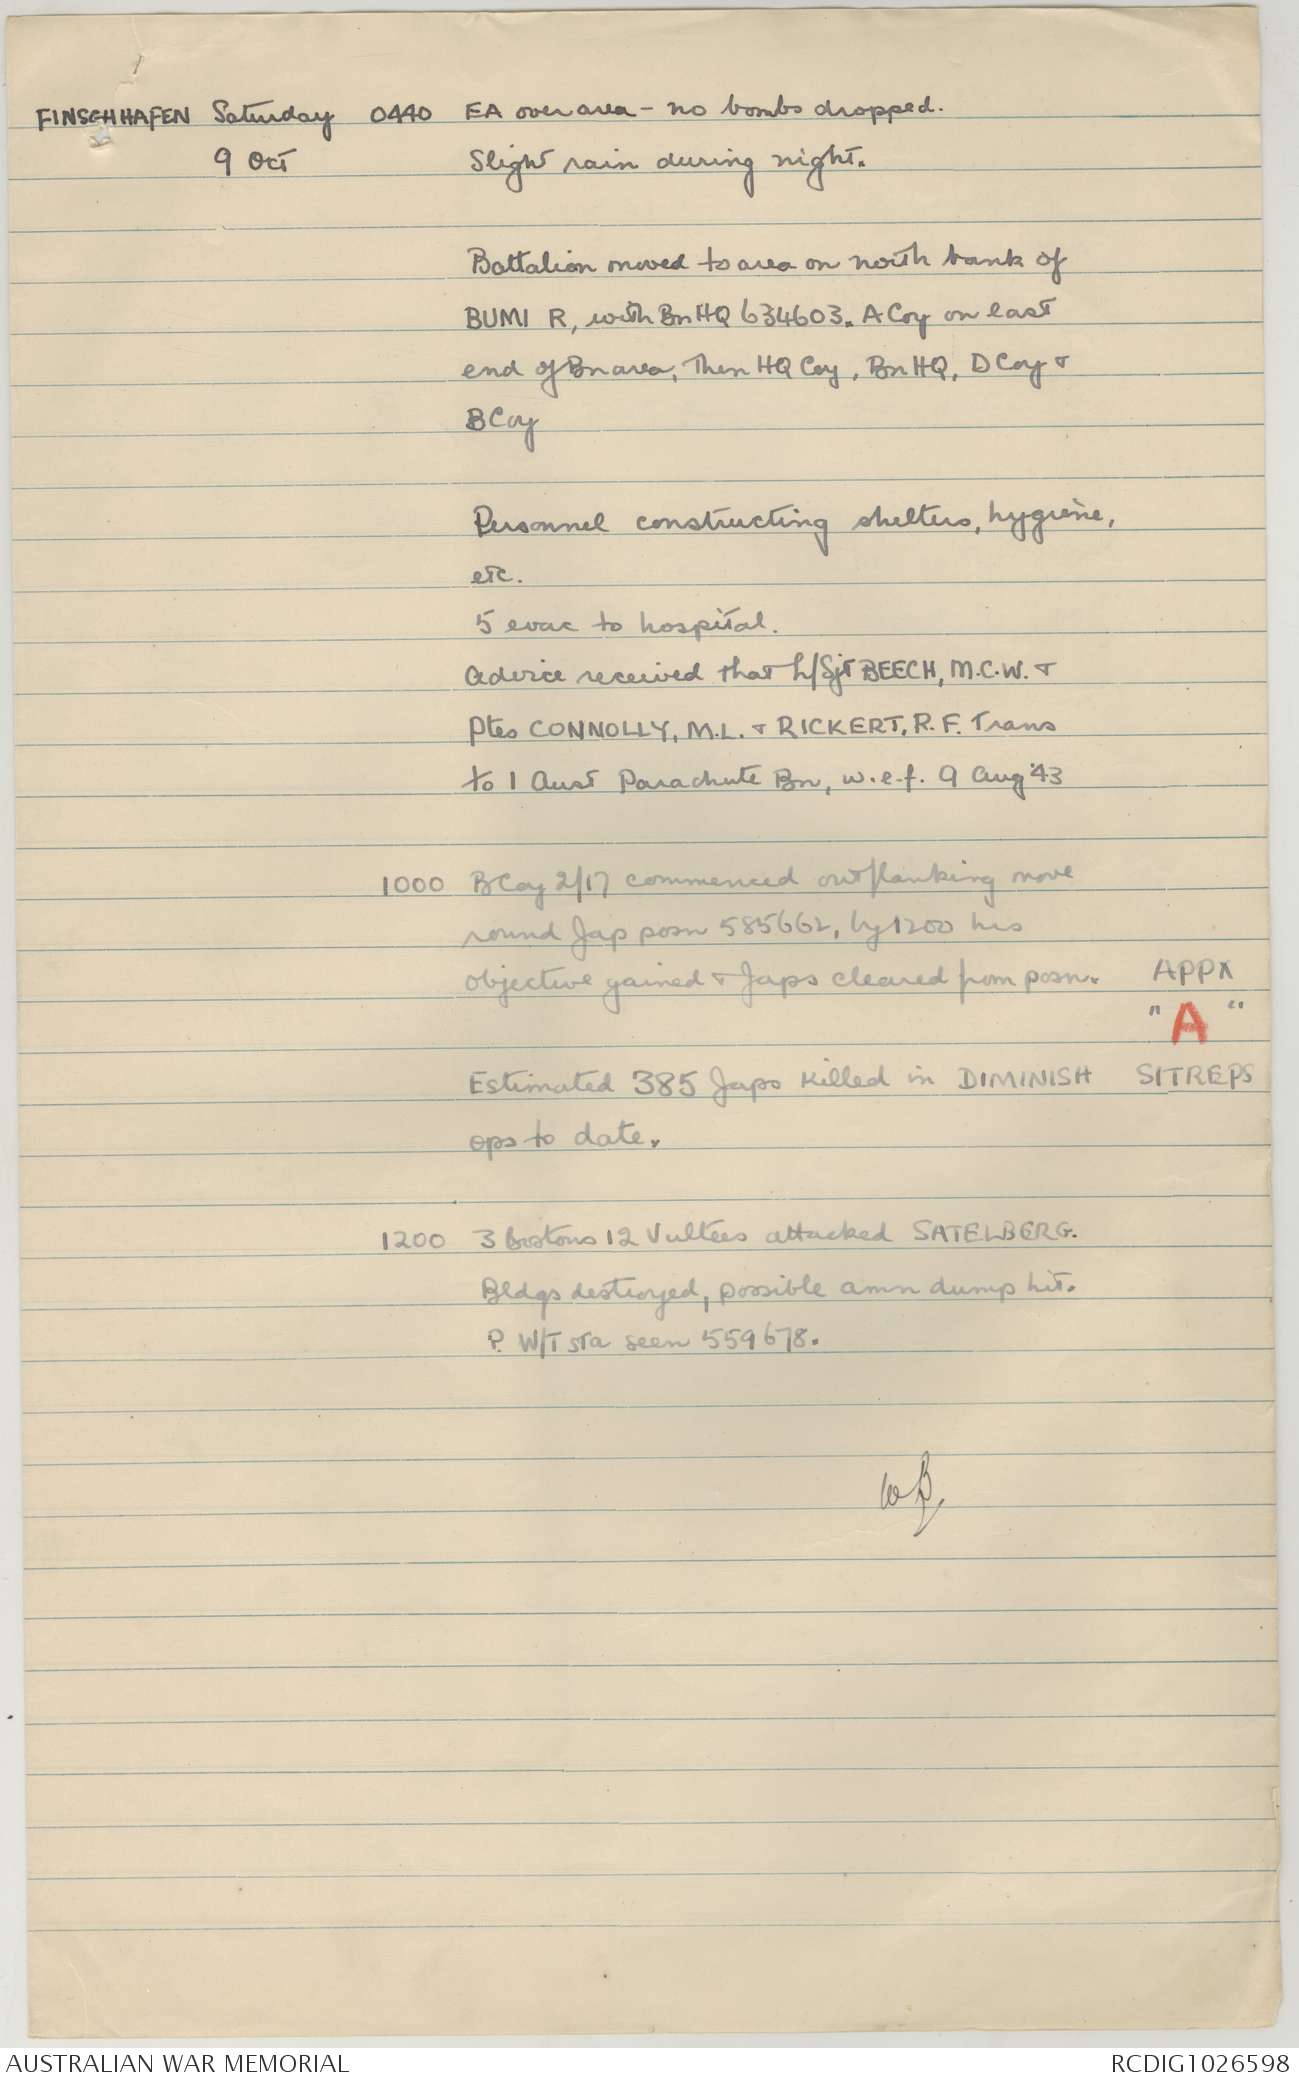 FINSCHHAFEN Saturday 0440 EA over area - no bombs dropped.
9 Oct Slight rain during night.
Battalion moved to area on north bank of
BUMI R, with Bn HQ 634603. A Coy on east
end of Bn area, then HQ Coy, Bn HQ, D Coy &
B Coy
Personnel constructing shelters, hygiene,
etc.
5 evac to hospital.
Advice received that L/Sjt BEECH, M.C.W. &
Ptes CONNOLLY, M.L. & RICKERT, R.F. Trans
to 1 Aust Parachute Bn, w.e.f. 9 Aug '43
1000 B Coy 2/17 commenced outflanking move
round Jap posn 585662, by 1200 hrs
objective gained & Japs cleared from posn. APPX
"A"
Estimated 385 Japs killed in DIMINISH SITREPS
ops to date.
1200 3 Bostons 12 Vultees attacked SATELBERG.
Bldgs destroyed, possible amn dump hit.
P. W/T sta seen 559678.
AUSTRALIAN WAR MEMORIAL RCDIG1026598